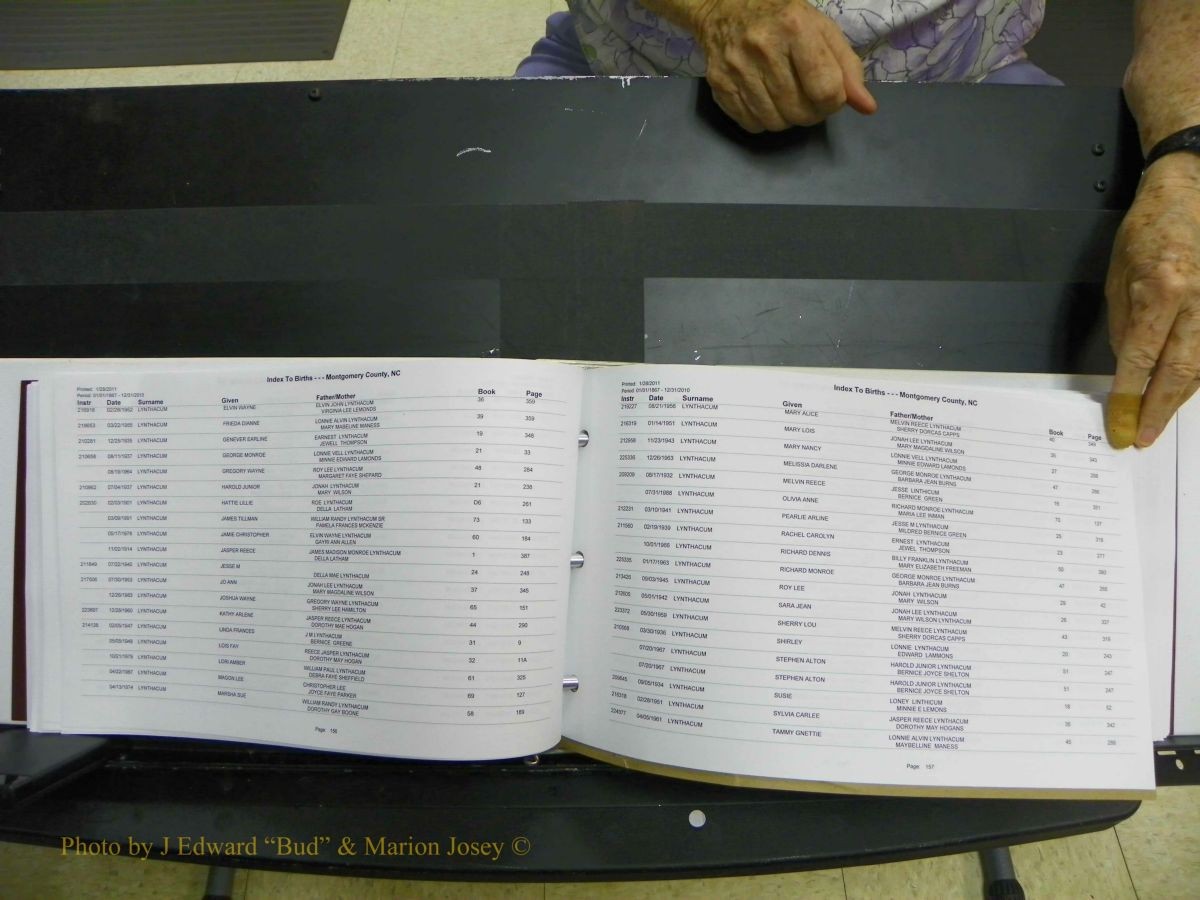 Printed: 1/28/2011
Period: 01/01/1867 - 12/31/2010
Index To Births - - - Montgomery County, NC
Instr Date Surname Given Father/Mother Book Page
02/28/1952 LYNTHACUM ELVIN WAYNE ELVIN JOHN LYNTHACUM 36 359
VIRGINIA LEE LEMONDS
03/22/1955 LYNTHACUM FRIEDA DIANNE LONNIE ALVIN LYNTHACUM 39 359
MARY MABELINE MANESS
210281 12/25/1935 LYNTHACUM GENEVER EARLINE EARNEST LYNTHACUM 19 348
JEWELL THOMPSON
210658 08/11/1937 LYNTHACUM GEORGE MONROE LONNIE VELL LYNTHACUM 21 33
MINNIE EDWARD LAMONDS
08/19/1964 LYNTHACUM GREGORY WAYNE ROY LEE LYNTHACUM 48 284
MARGARET FAYE SHEPARD
210862 07/04/1937 LYNTHACUM HAROLD JUNIOR JONAH LYNTHACUM 21 238
MARY WILSON
202830 02/03/1901 LYNTHACUM HATTIE LILLIE ROE LYNTHACUM D6 261
DELLA LATHAM
03/09/1991 LYNTHACUM JAMES TILLMAN WILLIAM RANDY LYNTHACUM SR 73 133
PAMELA FRANCES MCKENZIE
05/17/1976 LYNTHACUM JAMIE CHRISTOPHER ELVIN WAYNE LYNTHACUM 60 184
GAYRI ANN ALLEN
11/22/1914 LYNTHACUM JASPER REECE JAMES MADISON MONROE LYNTHACUM 1 387
DELLA LATHAM
211849 07/22/1940 LYNTHACUM JESSE M 24 248
DELLA MAE LYNTHACUM
217606 07/30/1953 LYNTHACUM JO ANN JONAH LEE LYNTHACUM 37 345
MARY MAGDALINE WILSON
12/26/1983 LYNTHACUM JOSHUA WAYNE GREGORY WAYNE LYNTHACUM 65 151
SHERRY LEE HAMILTON
223697 12/28/1960 LYNTHACUM KATHY ARLENE JASPER REECE LYNTHACUM 44 290
DOROTHY MAE HOGAN
214126 02/05/1947 LYNTHACUM LINDA FRANCES J M LYNTHACUM 31 9
BERNICE GREENE
05/05/1948 LYNTHACUM LOIS FAY REECE JASPER LYNTHACUM 32 11A
DOROTHY MAY HOGAN
10/21/1976 LYNTHACUM LORI AMBER WILLIAM PAUL LYNTHACUM 61 325
DEBRA FAYE SHEFFIELD
04/22/1987 LYNTHACUM MAGON LEE CHRISTOPHER LEE 69 127
JOYCE FAYE PARKER
04/13/1974 LYNTHACUM MARSHA SUE WILLIAM RANDY LYNTHACUM 58 189
DOROTHY GAY BOONE
Page: 156
Printed: 1/28/2011
Period: 01/01/1867 - 12/31/2010
Index To Births - - - Montgomery County, NC
Instr Date Surname Given Father/Mother Book Page
219227 08/21/1956 LYNTHACUM MARY ALICE MELVIN REECE LYNTHACUM 40 349
SHERRY DORCAS CAPPS
216319 01/14/1951 LYNTHACUM MARY LOIS JONAH LEE LYNTHACUM 35 343
MARY MAGDALINE WILSON
212958 11/23/1943 LYNTHACUM MARY NANCY LONNIE VELL LYNTHACUM 27
MINNIE EDWARD LAMONDS
225336 12/26/1963 LYNTHACUM MELISSIA DARLENE GEORGE MONROE LYNTHACUM 47 286
BARBARA JEAN BURNS
209209 08/17/1932 LYNTHACUM MELVIN REECE JESSE LINTHICUM 16 351
BERNICE GREEN
07/31/1988 LYNTHACUM OLIVIA ANNE RICHARD MONROE LYNTHACUM 70 137
MARIA LEE INMAN
212231 03/10/1941 LYNTHACUM PEARLIE ARLINE JESSE M LYNTHACUM 25 319
MILDRED BERNICE GREEN
211560 02/19/1939 LYNTHACUM RACHEL CAROLYN ERNEST LYNTHACUM 23 277
JEWEL THOMPSON
10/01/1966 LYNTHACUM RICHARD DENNIS BILLY FRANKLIN LYNTHACUM 50
MARY ELIZABETH FREEMAN
225335 01/17/1963 LYNTHACUM RICHARD MONROE GEORGE MONROE LYNTHACUM 47 285
BARBARA JEAN BURNS
213426 09/03/1945 LYNTHACUM ROY LEE JONAH LYNTHACUM 29 42
MARY WILSON
212605 05/01/1942 LYNTHACUM SARA JEAN JONAH LEE LYNTHACUM 26 337
MARY WILSON LYNTHACUM
223372 05/30/1959 LYNTHACUM SHERRY LOU MELVIN REECE LYNTHACUM 43 319
SHERRY DORCAS CAPPS
210568 03/30/1936 LYNTHACUM SHIRLEY LONNIE LYNTHACUM 20 243
EDWARD LAMMONS
07/20/1967 LYNTHACUM STEPHEN ALTON HAROLD JUNIOR LYNTHACUM 51 247
BERNICE JOYCE SHELTON
07/20/1967 LYNTHACUM STEPHEN ALTON HAROLD JUNIOR LYNTHACUM 51 247
BERNICE JOYCE SHELTON
209845 09/05/1934 LYNTHACUM SUSIE LONEY LINTHICUM 18 52
MINNIE E LEMONS
216318 02/28/1951 LYNTHACUM SYLVIA CARLEE JASPER REECE LYNTHACUM 35 342
DOROTHY MAY HOGANS
224377 04/05/1961 LYNTHACUM TAMMY GNETTIE LONNIE ALVIN LYNTHACUM 45 286
MAYBELLINE MANESS
Page: 157
Photo by J Edward “Bud” & Marion Josey ©